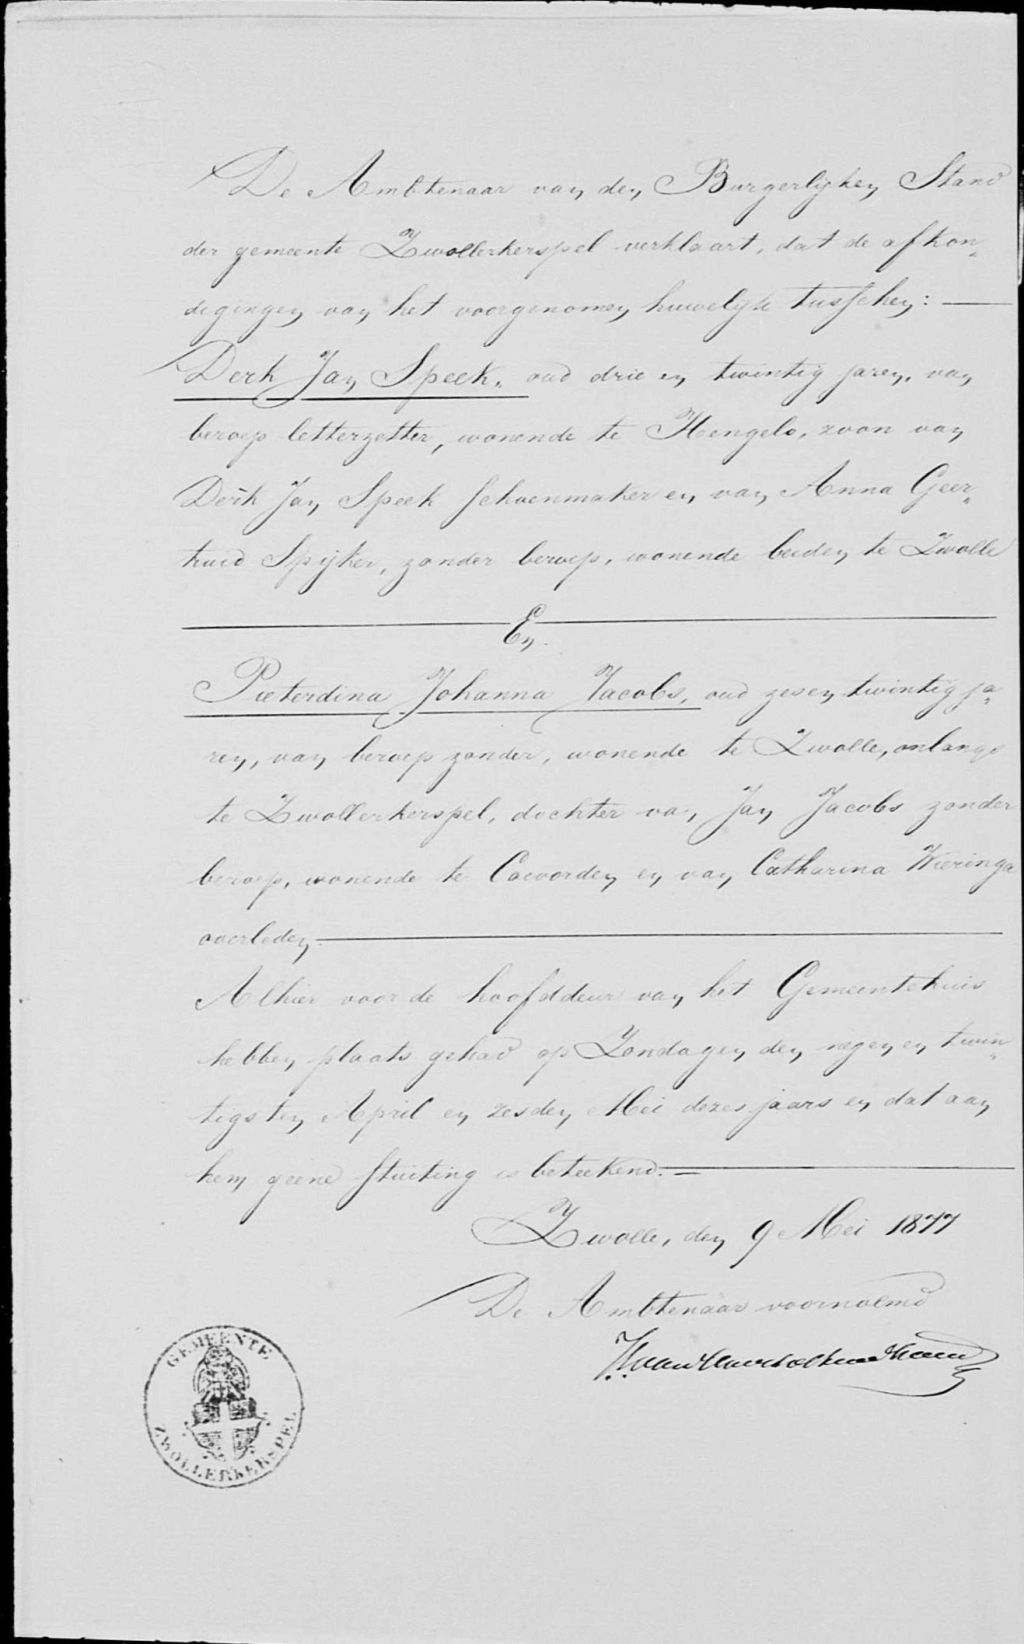 De Ambtenaar van den Burgerlijken Stand
der gemeente Zwollerkerspel verklaart, dat de afkon„
digingen van het voorgenomen huwelijk tusschen:
Derk Jan Speek, oud drie en twintig jaren, van
beroep letterzetter, wonende te Hengelo, zoon van
Derk Jan Speek schoenmaker en van Anna Geer„
truid Spijker, zonder beroep, wonende beiden te Zwolle
En
Pieterdina Johanna Jacobs, oud zes en twintig ja„
ren, van beroep zonder, wonende te Zwolle, onlangs
te Zwollerkerspel, dochter van Jan Jacobs zonder
beroep, wonende te Coevorden en van Catharina Wieringa
overleden
Alhier voor de hoofddeur van het Gemeentehuis
hebben plaats gehad op Zondagen den negen en twin„
tigsten April en zesden Mei dezes jaars en dat aan
hem geene stuiting is beteekend.
Zwolle, den 9 Mei 1877
De Ambtenaar voornoemd
GEMEENTE
ZWOLLERKERSPEL